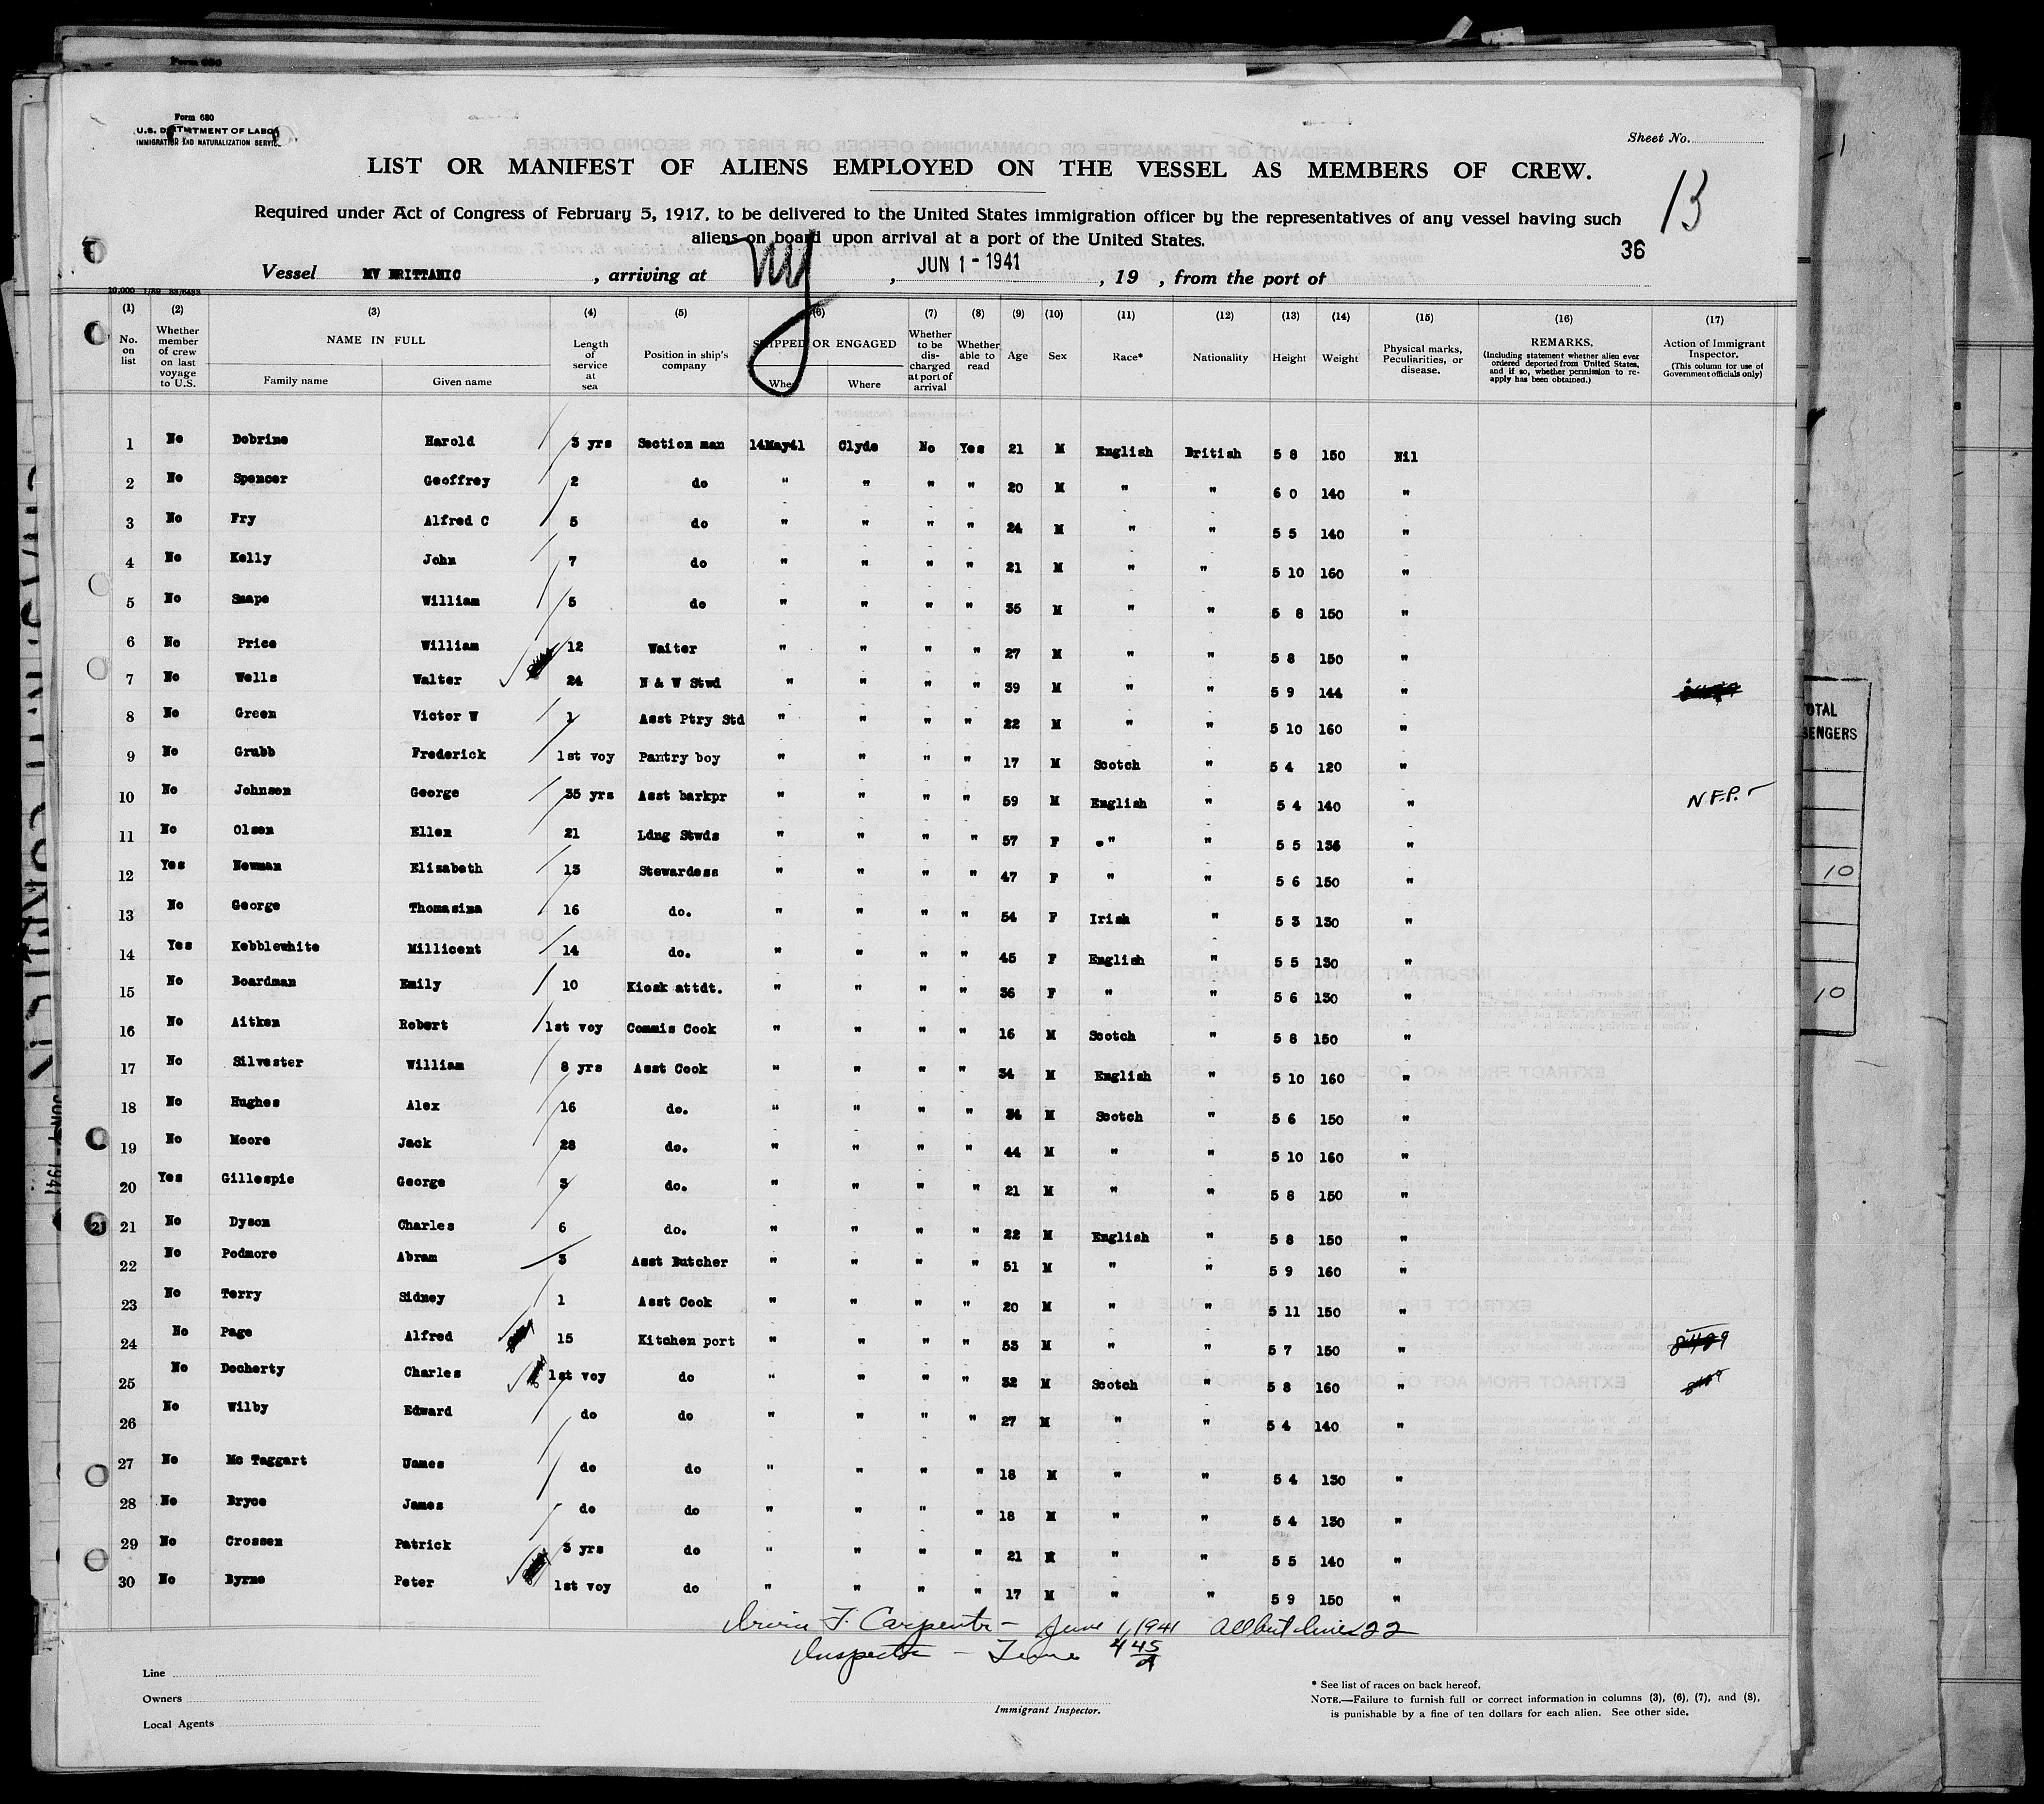 Form 680
U.S. DEPARTMENT OF LABOR
IMMIGRATION AND NATURALIZATION SERVICE
Sheet No.
LIST OR MANIFEST OF ALIENS EMPLOYED ON THE VESSEL AS MEMBERS OF CREW.
13
Required under Act of Congress of February 5, 1917, to be delivered to the United States immigration officer by the representatives of any vessel having such
aliens on board upon arrival at a port of the United States.
36
Vessel MV BRITTANIC , arriving at NY , JUN 1 - 1941 , 19 , from the port of
(1) (2) (3) (4) (5) (6) (7) (8) (9) (10) (11) (12) (13) (14) (15) (16) (17)
No. on list
Whether member of crew on last voyage to U.S.
NAME IN FULL
Family name
Given name
Length of service at sea
Position in ship's company
SHIPPED OR ENGAGED
When
Where
Whether to be discharged at port of arrival
Whether able to read
Age
Sex
Race*
Nationality
Height
Weight
Physical marks, Peculiarities, or disease.
REMARKS.
(Including statement whether alien ever ordered deported from United States, and if so, whether permission to reapply has been obtained.)
Action of Immigrant Inspector.
(This column for use of Government officials only)
1 No Dobrine Harold 3 yrs Section man 14May41 Clyde No Yes 21 M English British 5 8 150 Nil
2 No Spencer Geoffrey 2 do " " " " 20 M " " 6 0 140 "
3 No Fry Alfred C 5 do " " " " 24 M " " 5 5 140 "
4 No Kelly John 7 do " " " " 21 M " " 5 10 160 "
5 No Snape William 5 do " " " " 35 M " " 5 8 150 "
6 No Price William 12 Waiter " " " " 27 M " " 5 8 150 "
7 No Wells Walter 24 N & W Stwd " " " " 39 M " " 5 9 144 "
8 No Green Victor W 1 Asst Ptry Std " " " " 22 M " " 5 10 160 "
9 No Grubb Frederick 1st voy Pantry boy " " " " 17 M Scotch " 5 4 120 "
10 No Johnson George 35 yrs Asst barkpr " " " " 59 M English " 5 4 140 " N.F.P.
11 No Olsen Ellen 21 Ldng Stwds " " " " 57 F " " 5 5 136 "
12 Yes Newman Elizabeth 13 Stewardess " " " " 47 F " " 5 6 150 "
13 No George Thomasina 16 do. " " " " 54 F Irish " 5 3 130 "
14 Yes Kebblewhite Millicent 14 do. " " " " 45 F English " 5 5 130 "
15 No Boardman Emily 10 Kiosk attdt. " " " " 36 F " " 5 6 130 "
16 No Aitken Robert 1st voy Commis Cook " " " " 16 M Scotch " 5 8 150 "
17 No Silvester William 8 yrs Asst Cook " " " " 34 M English " 5 10 160 "
18 No Hughes Alex 16 do. " " " " 34 M Scotch " 5 6 150 "
19 No Moore Jack 28 do. " " " " 44 M " " 5 10 160 "
20 Yes Gillespie George 3 do. " " " " 21 M " " 5 8 150 "
21 21 No Dyson Charles 6 do. " " " " 22 M English " 5 8 150 "
22 No Podmore Abram 3 Asst Butcher " " " " 51 M " " 5 9 160 "
23 No Terry Sidney 1 Asst Cook " " " " 20 M " " 5 11 150 "
24 No Page Alfred 15 Kitchen port " " " " 53 M " " 5 7 150 "
25 No Docherty Charles 1st voy do " " " " 32 M Scotch " 5 8 160 "
26 No Wilby Edward do do " " " " 27 M " " 5 4 140 "
27 No Mc Taggart James do do " " " " 18 M " " 5 4 130 "
28 No Bryce James do do " " " " 18 M " " 5 4 130 "
29 No Crossen Patrick 3 yrs do " " " " 21 M " " 5 5 140 "
30 No Byrne Peter 1st voy do " " " " 17 M " " 5 9 150 "
Irwin F. Carpenter - June 1, 1941 All but lines 22
Inspector - Time 4 45
Line
Owners
Local Agents
Immigrant Inspector.
* See list of races on back hereof.
NOTE.—Failure to furnish full or correct information in columns (3), (6), (7), and (8),
is punishable by a fine of ten dollars for each alien. See other side.
10
10